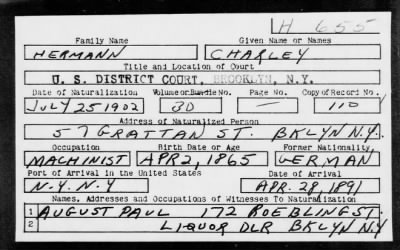 H 655
Family Name Given Name or Names
HERMANN CHARLEY
Title and Location of Court
U. S. DISTRICT COURT, BROOKLYN, N.Y.
Date of Naturalization Volume or Bundle No. Page No. Copy of Record No.
JULY 25 1902 30 — 110
Address of Naturalized Person
57 GRATTAN ST. BKLYN N.Y.
Occupation Birth Date or Age Former Nationality
MACHINIST APR 2, 1865 GERMAN
Port of Arrival in the United States Date of Arrival
N.Y. N.Y APR. 28, 1891
Names, Addresses and Occupations of Witnesses To Naturalization
1 AUGUST PAUL 172 ROEBLING ST.
2 LIQUOR DLR BKLYN N.Y